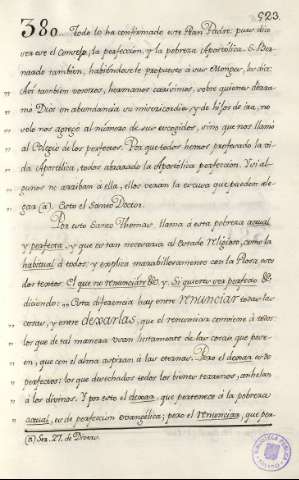 523.
380... Todo lo ha confirmado este Gran Padre: pues dixo
ser ese el Consejo, la perfeccion, y la pobreza Apostolica. S. Ber-
nardo tambien, habiendosele propuesto á sus Monges, les dice:
Asi tambien vosotros, hermanos carisimos, sobre quienes derra-
mó Dios en abundancia su misericordia, y de hijos de ira, no
solo nos agregó al número de sus escogidos, sino que nos llamó
al Colegio de los perfectos. Por que todos hemos profesado la vi-
da Apostólica, todos abrazado la Apostólica perfeccion. Y si al-
gunos no arriban á ella, ellos verán la escusa que pueden ale-
gar (a). Esto el Santo Doctor.
Por esto Santo Thomas, llama á esta pobreza actual
y perfecta, y que es tan necesaria al estado religioso, como la
habitual á todos: y explica marabillosamente con la Glosa, estos
dos textos. El que no renunciáre &c. y Si quieres ser perfecto &c.
diciendo: „ Esta diferencia hay entre renunciar todas las
„ cosas, y entre dexarlas, que el renunciar conviene á todos:
„ los que de tal manera usan licitamente de las cosas que pose-
„ en, que con el alma aspiran á las eternas. Pero el dexar es de
„ perfectos: los que desechados todos los bienes terrenos, anhelan
„ á los divinos. Y por esto el dexar, que pertenece á la pobreza
„ actual, es de perfeccion evangélica; pero el renunciar, que per-
(a) Ser. 27. de Divers.